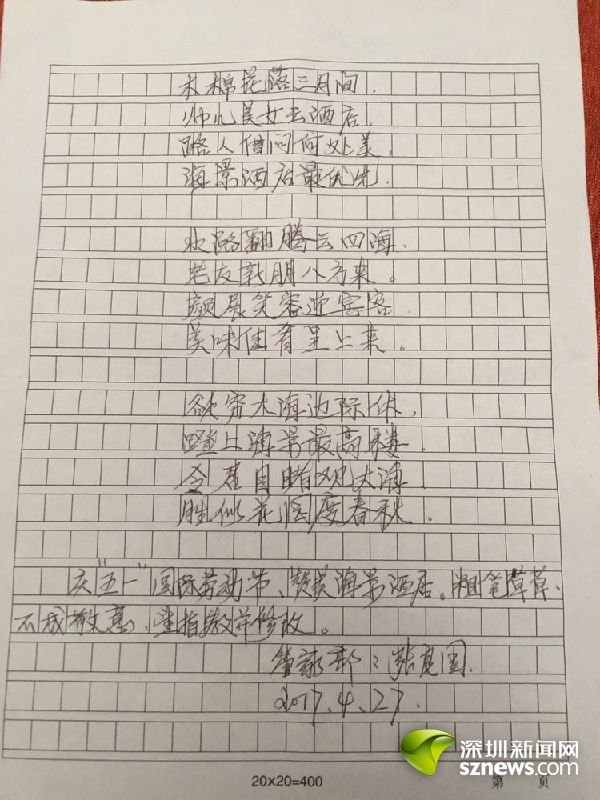 木棉花落三月间.
帅儿美女去酒店.
路人借问何处美.
海景酒店最优先.
水路翻腾云四海.
老友新朋八方来。
颜展笑容迎宾客.
美味佳肴呈上来。
欲穷大海边际休.
登上海景最高楼.
令君目睹观大海
胜似花园度春秋.
庆"五一"国际劳动节、赞美海景酒店。粗笔草草.
不成敬意、望指教并修改。
管家部:张庭国.
2017.4.27.
20×20=400
第 页
深圳新闻网
sznews.com